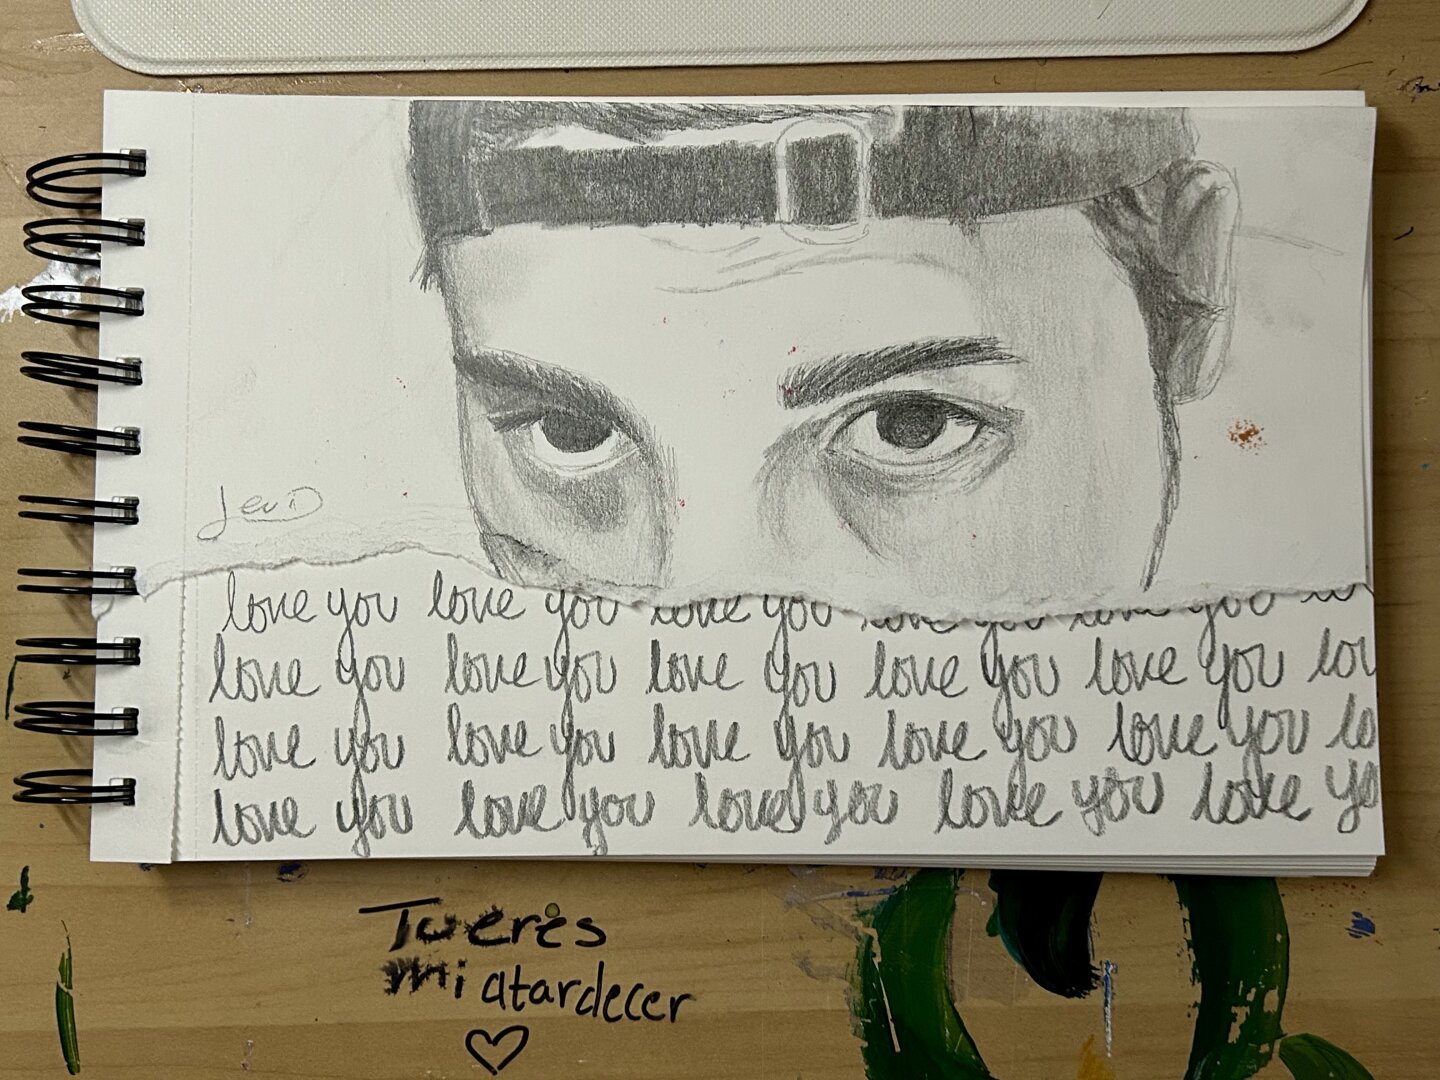 love you love you love you love you love you lo
love you love you love you love you love you lov
love you love you love you love you love you lo
love you love you love you love you love yo
Tu eres
mi atardecer